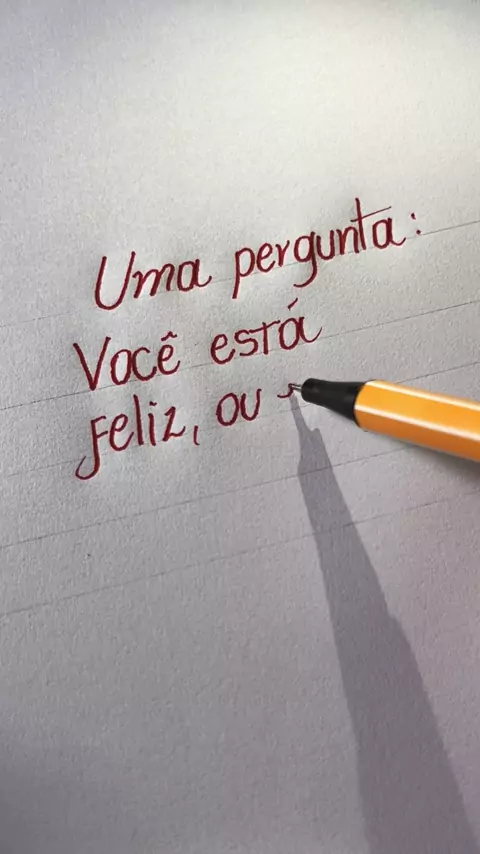 Uma pergunta:
Você está
Feliz, ou